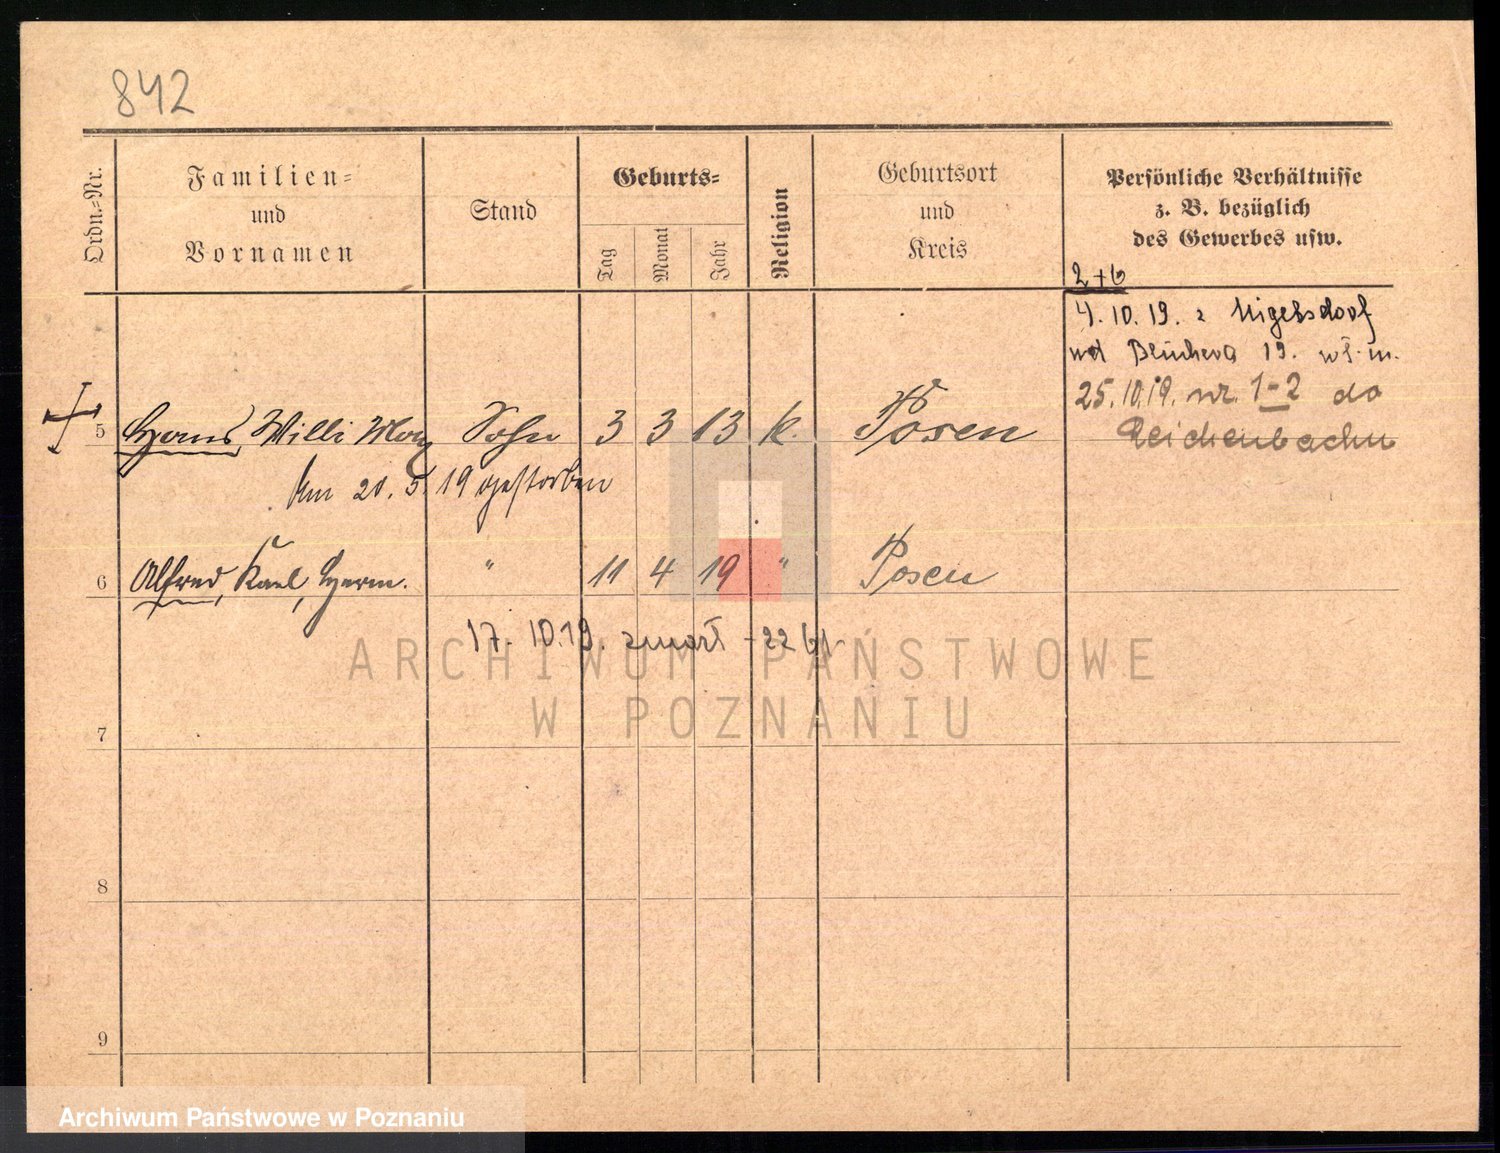 842
Ordn.-Nr.
Familien-
und
Vornamen
Stand
Geburts-
Tag
Monat
Jahr
Religion
Geburtsort
und
Kreis
Persönliche Verhältnisse
z. B. bezüglich
des Gewerbes usw.
2+6
4.10.19. z
Blüchera 19.
25.10.19. nr. 1-2 do
Reichenbachu
5 Hans Willi Sohn 3 3 13 k. Posen
Am 20.5.19 gestorben
6 Alfred, Karl, Herm. " 11 4 19 " Posen
17.10.19. zmarł
7
8
9
ARCHIWUM PAŃSTWOWE
W POZNANIU
Archiwum Państwowe w Poznaniu